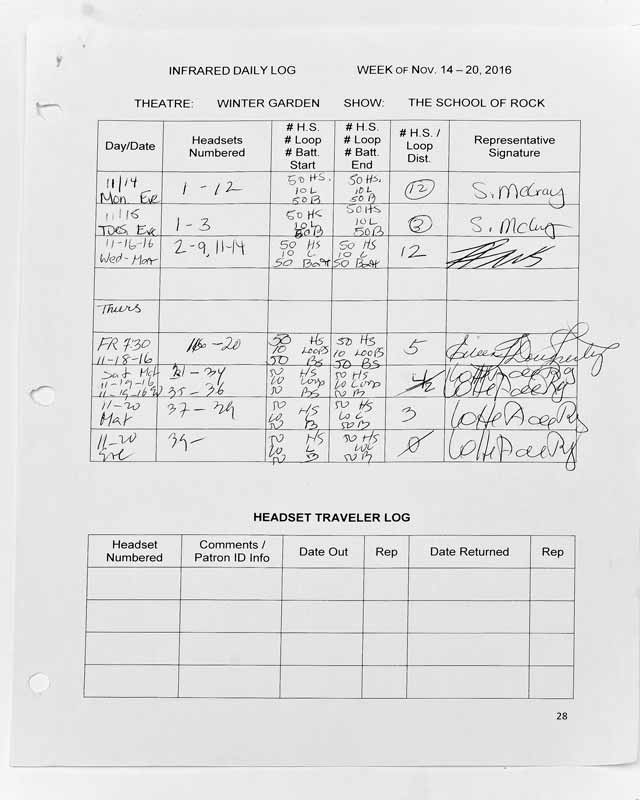 INFRARED DAILY LOG WEEK OF NOV. 14 – 20, 2016
THEATRE: WINTER GARDEN SHOW: THE SCHOOL OF ROCK
Day/Date
Headsets
Numbered
# H.S.
# Loop
# Batt.
Start
# H.S.
# Loop
# Batt.
End
# H.S. /
Loop
Dist.
Representative
Signature
11/14
Mon. Eve
1 - 12
50 HS.
10 L
50 B
50 HS.
10 L
50 B
12
S. McCray
11/15
TUES Eve
1 - 3
50 HS
10 L
50 B
50 HS
10 L
50 B
3
11-16-16
Wed-Mat
2-9, 11-14
50 HS
10 L
50 Batt
50 HS
10 L
50 Batt
12
Thurs
FR 7:30
11-18-16
-20
50 HS
10 LOOPS
50 BS
50 HS
10 LOOPS
50 BS
5
Sat Mat
11-19-16
11-19-16
- 34
35 - 36
50 HS
10 Loop
50 B
50 HS
10 Loop
50 B
11-20
Mat
37 - 39
50 HS
10
50 B
50 HS
10 L
50 B
3
11-20
Eve
39 -
50 HS
10 L
50 B
50 HS
50 B
0
HEADSET TRAVELER LOG
Headset
Numbered
Comments /
Patron ID Info
Date Out
Rep
Date Returned
Rep
28